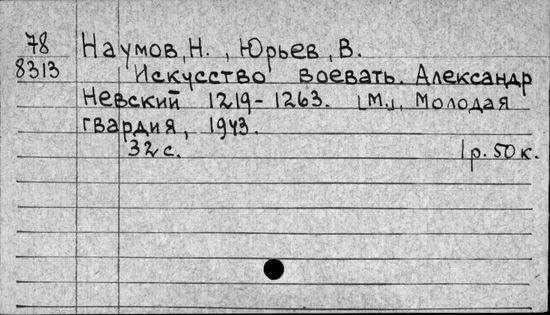 78 Наумов, Н., Юрьев, В.
8313 Искусство воевать. Александр
Невский 1219-1263. [М.], Молодая
гвардия, 1943.
32 с. 1 р. 50 к.